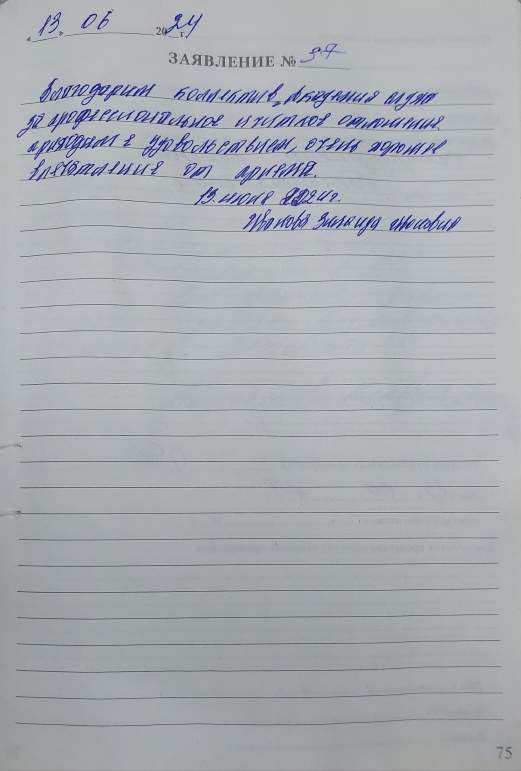 "13" 06 2024 г.
ЗАЯВЛЕНИЕ № 37
Благодарим коллектив „Академия слуха
за профессиональное и чуткое отношение.
приходим с удовольствием, очень хорошие
впечатления от приема.
13 июня 2024г.
Иванова Зинаида
75